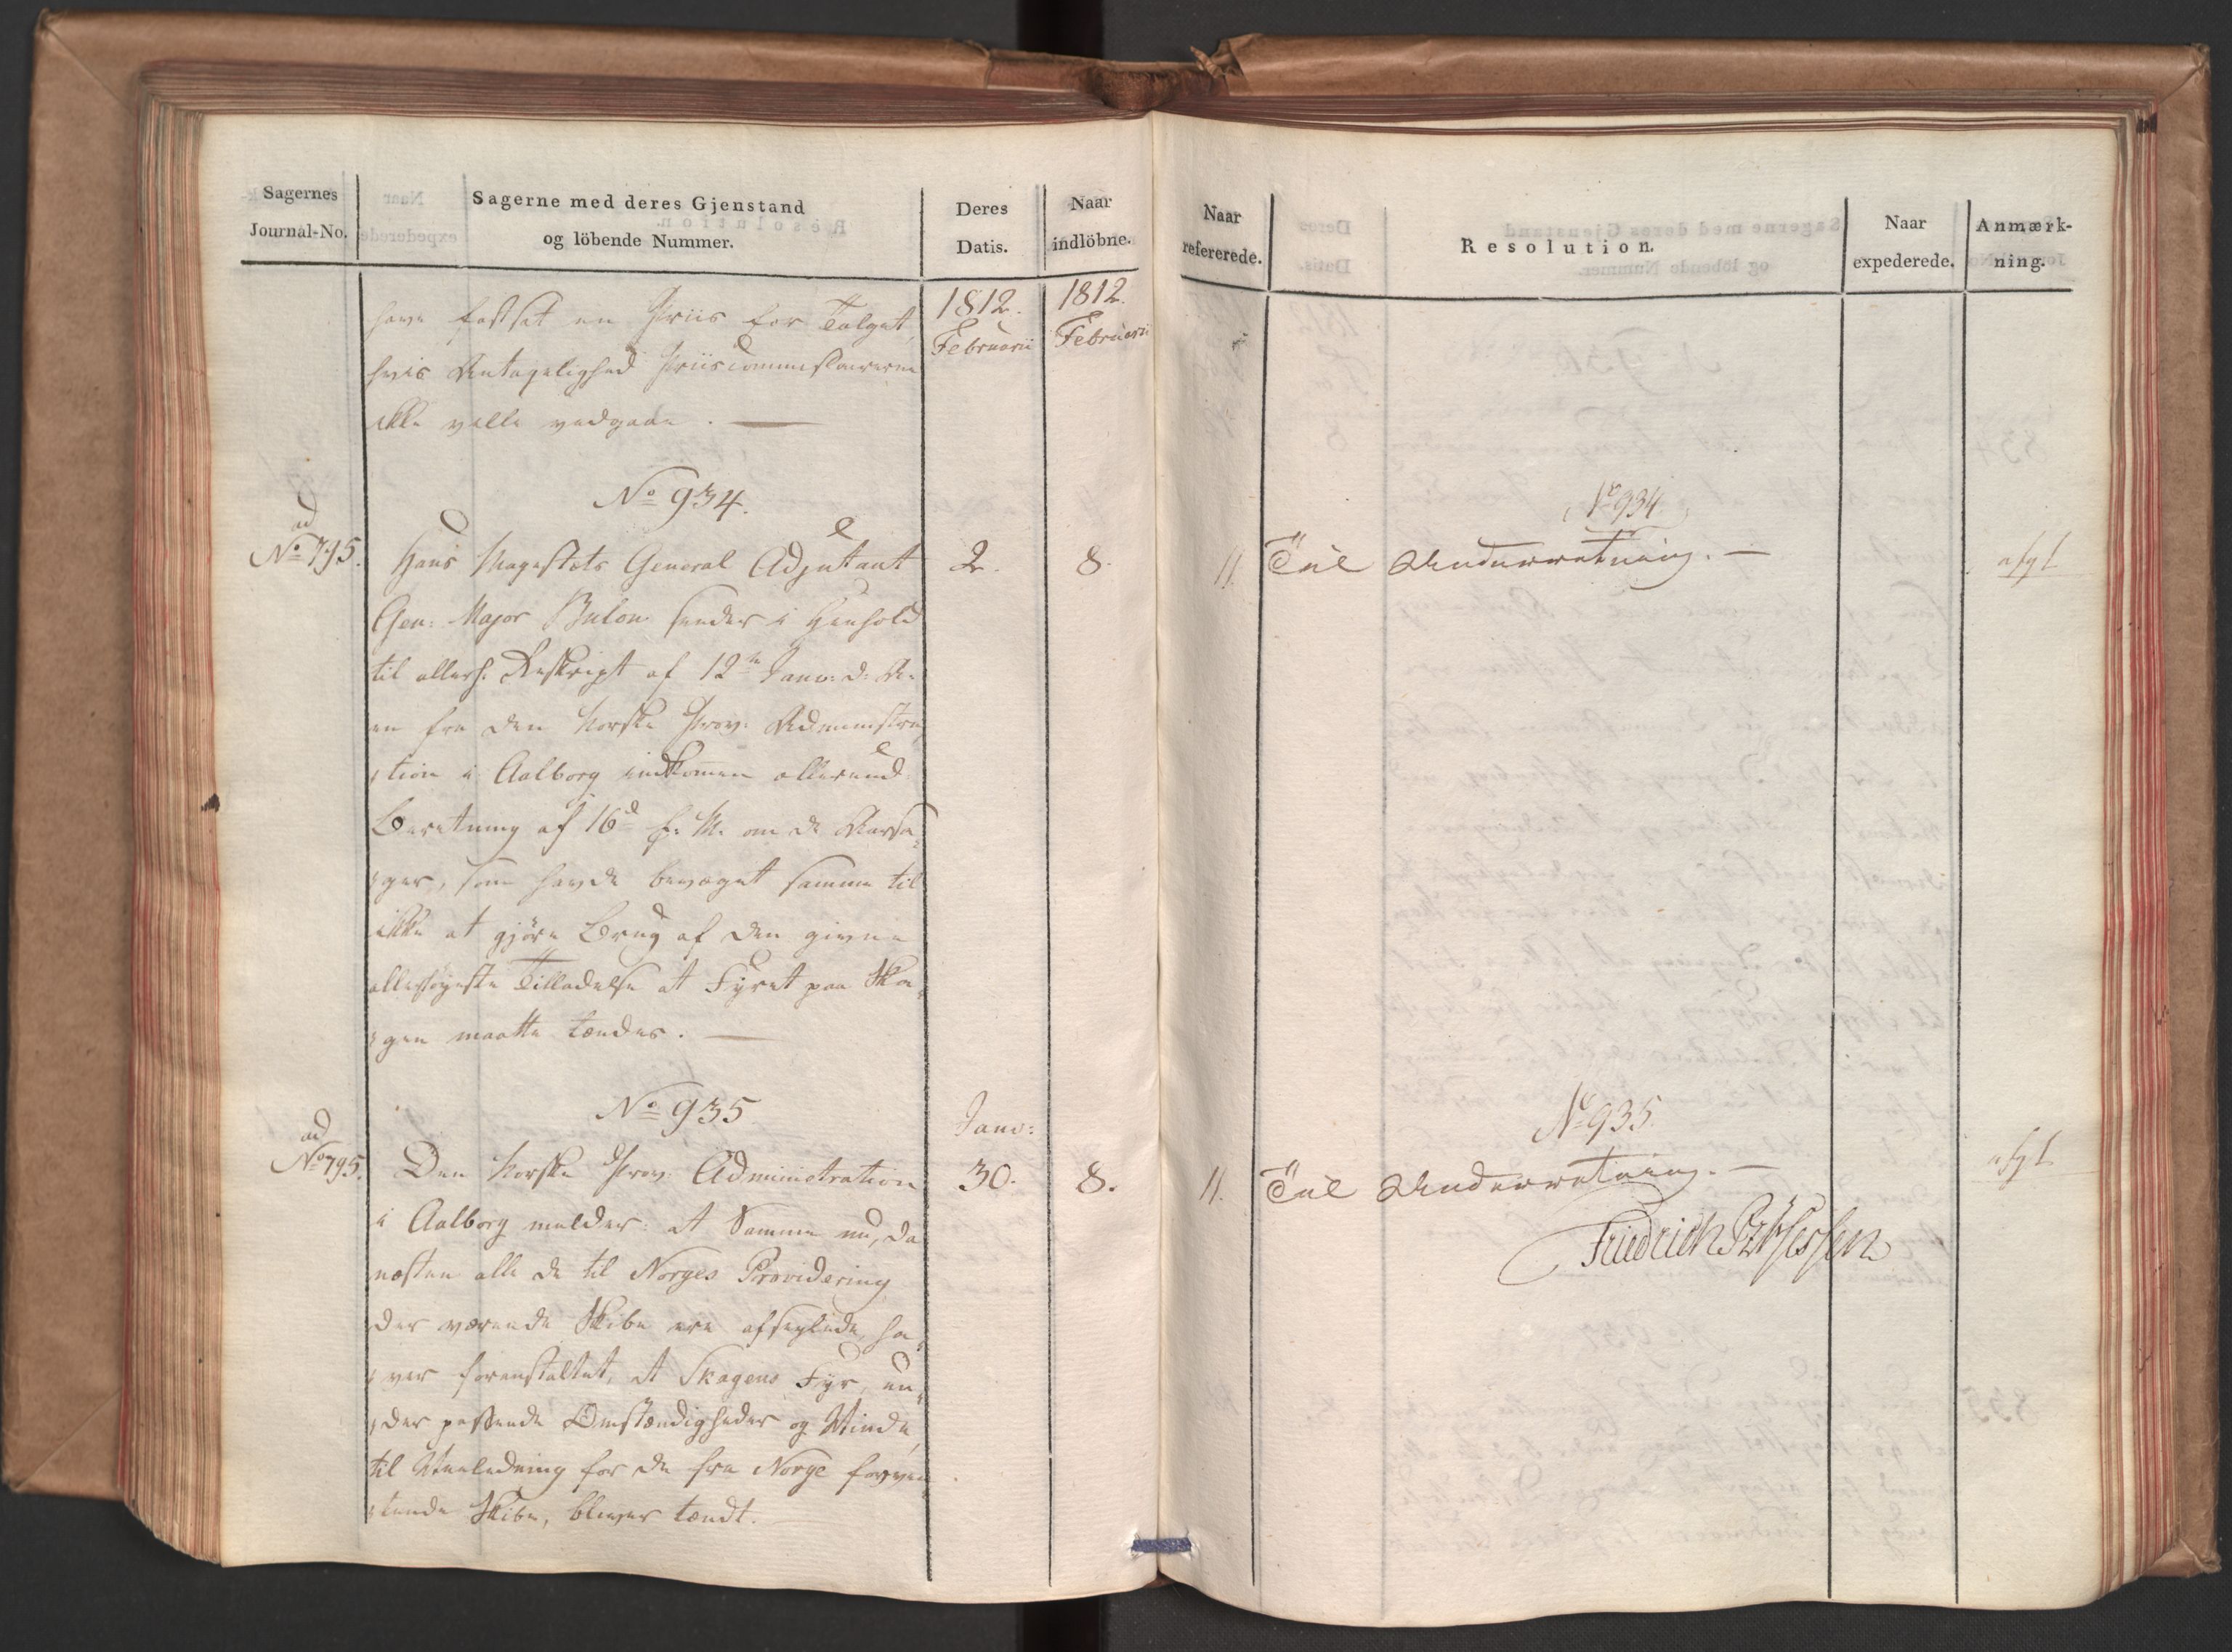 Sagernes
Journal-No.
Sagerne med deres Gjenstand
og löbende Nummer.
Deres
Datis.
Naar
indlöbne.
1812.
Februarii
1812.
Februarii
have fastsat en Priis for Talget,
hvis Antagelighed Priiscommissairerne
ikke ville vedgaae. —
No 934.
ad
No 795.
Hans Majestæts General Adjutant
2.
8.
Gen: Major Bülow sender i Henhold
til allerh: Reskript af 12te Janv: d: A.
en fra den Norske Prov: Administra,
,tion i Aalborg indkommen allerund
Beretning af 16d f: M. om de Aarsa,
,ger, som havde bevæget samme til
ikke at gjöre Brug af den givne
allerhøyeste Tilladelse at Fyret paa Ska,
,gen maatte tændes. —
No 935
ad
No 795.
Janv:
Den Norske Prov: Administration
30.
8.
i Aalborg melder: at Samme nu, da
næsten alle de til Norges Providering
der værende Skibe ere afseylede, ha,
,ver foranstaltet, at Skagens Fyr, un,
,der passende Omstændigheder og Vinde,
til Veiledning for de fra Norge forven,
,tende Skibe, bliver tændt.
Naar
refererede.
Resolution.
Naar
expederede.
Anmærk-
ning.
No 934
11.
Til Underretning. —
afgl
No 935.
11.
Til Underretning. —
afgl
Friedrich